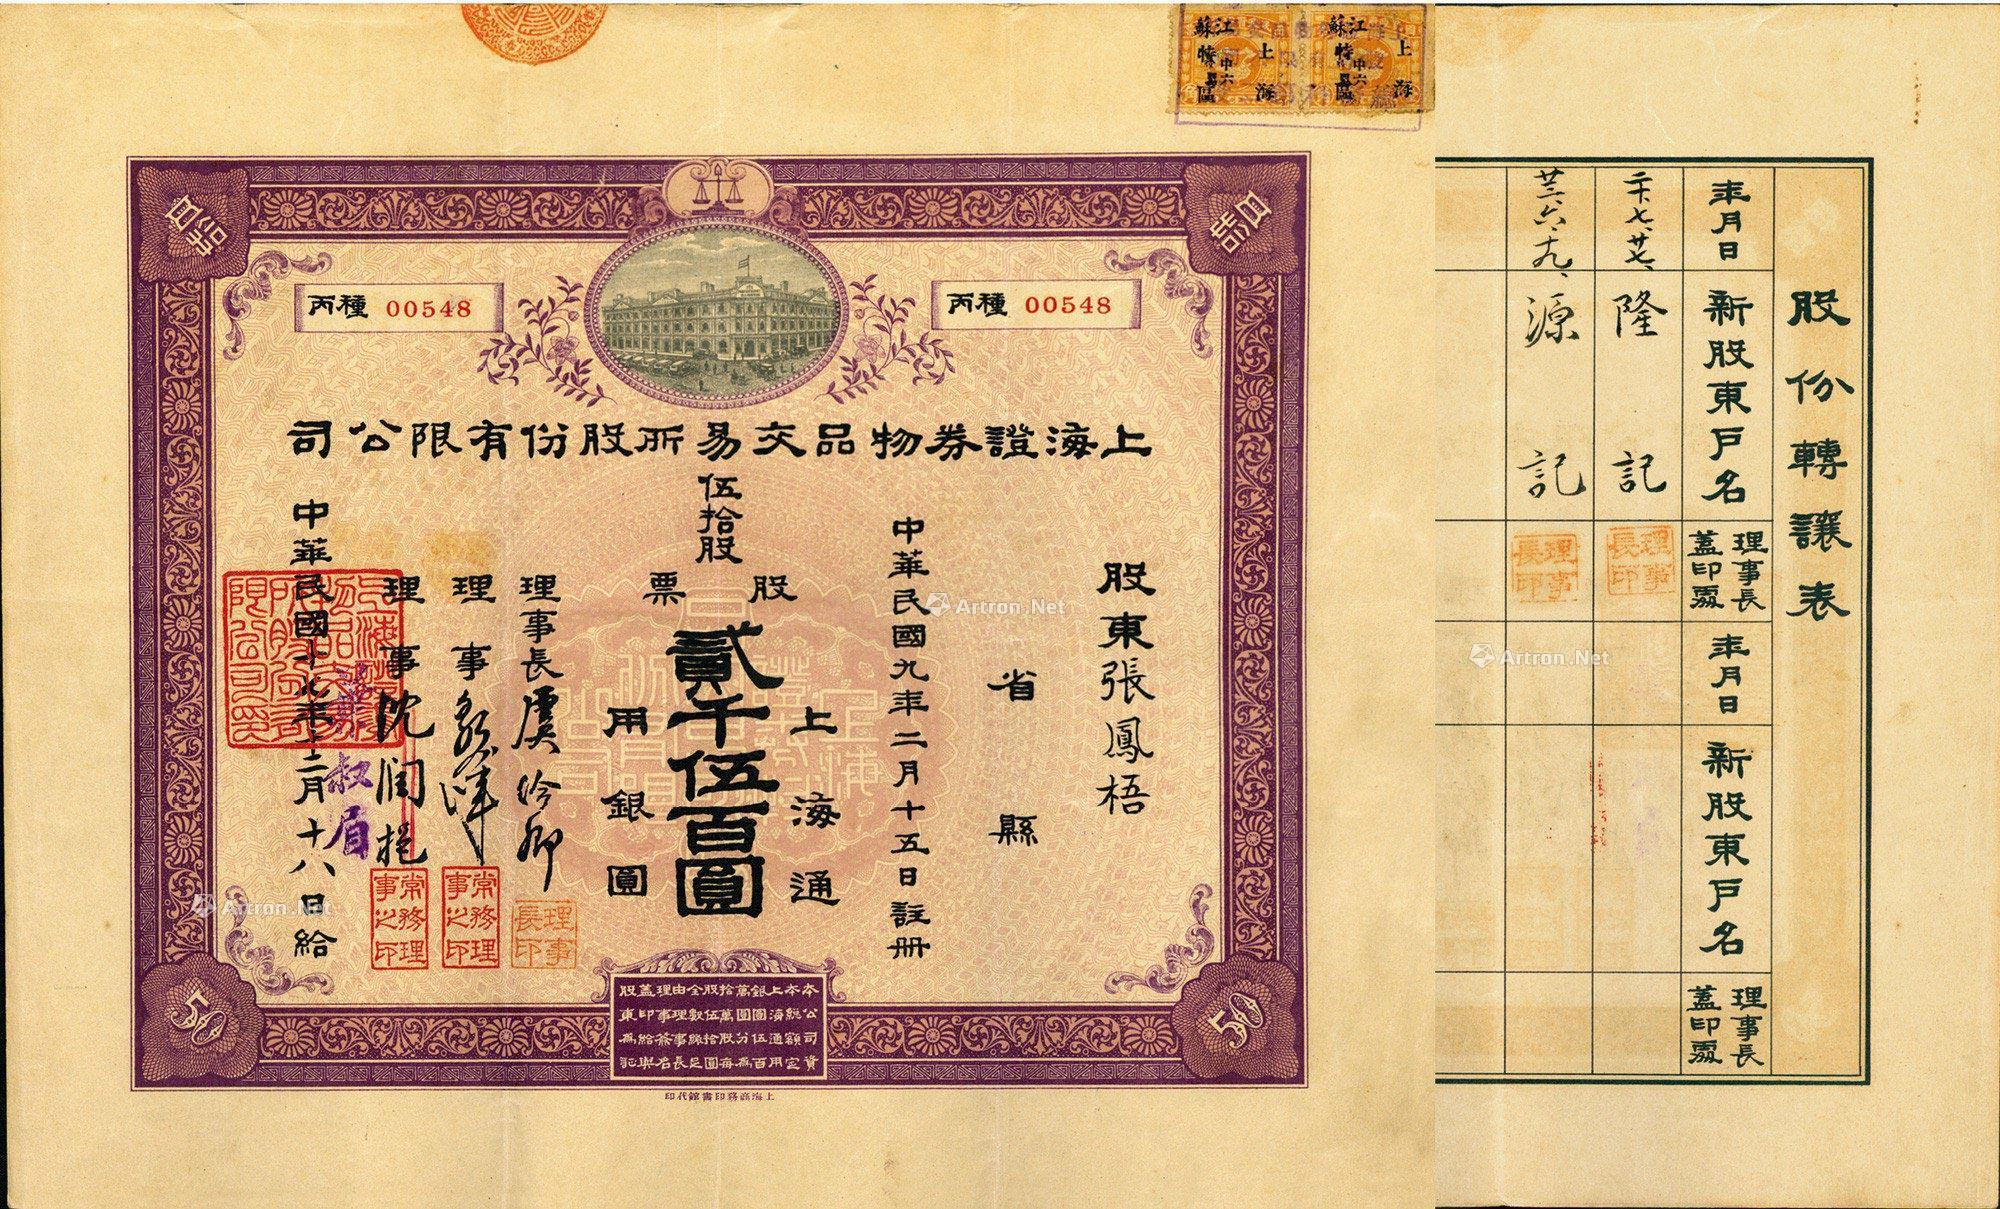 江蘇
上海
特區
江蘇
上海
特區
丙種 00548
丙種 00548
上海證券物品交易所股份有限公司
伍拾股
股票
股東張鳳梧
省縣
中華民國九年二月十五日註冊
上海通用銀圓
貳千伍百圓
理事長虞洽卿
理事長印
理事
常務理事之印
理事沈潤挹
常務理事之印
中華民國十七年十二月十八日給
50
50
本公司資本總額定上海通用銀圓伍百萬圓分為拾萬股每股伍拾圓全數繳足由理事長理事簽名蓋印給與股東為訖
上海商務印書館代印
股份轉讓表
年月日
新股東戶名
理事長蓋印處
年月日
新股東戶名
理事長蓋印處
二十、七、廿七、
隆記
理事長印
廿三、六、十九、
源記
理事長印
Artron.Net
Artron.Net
Artron.Net